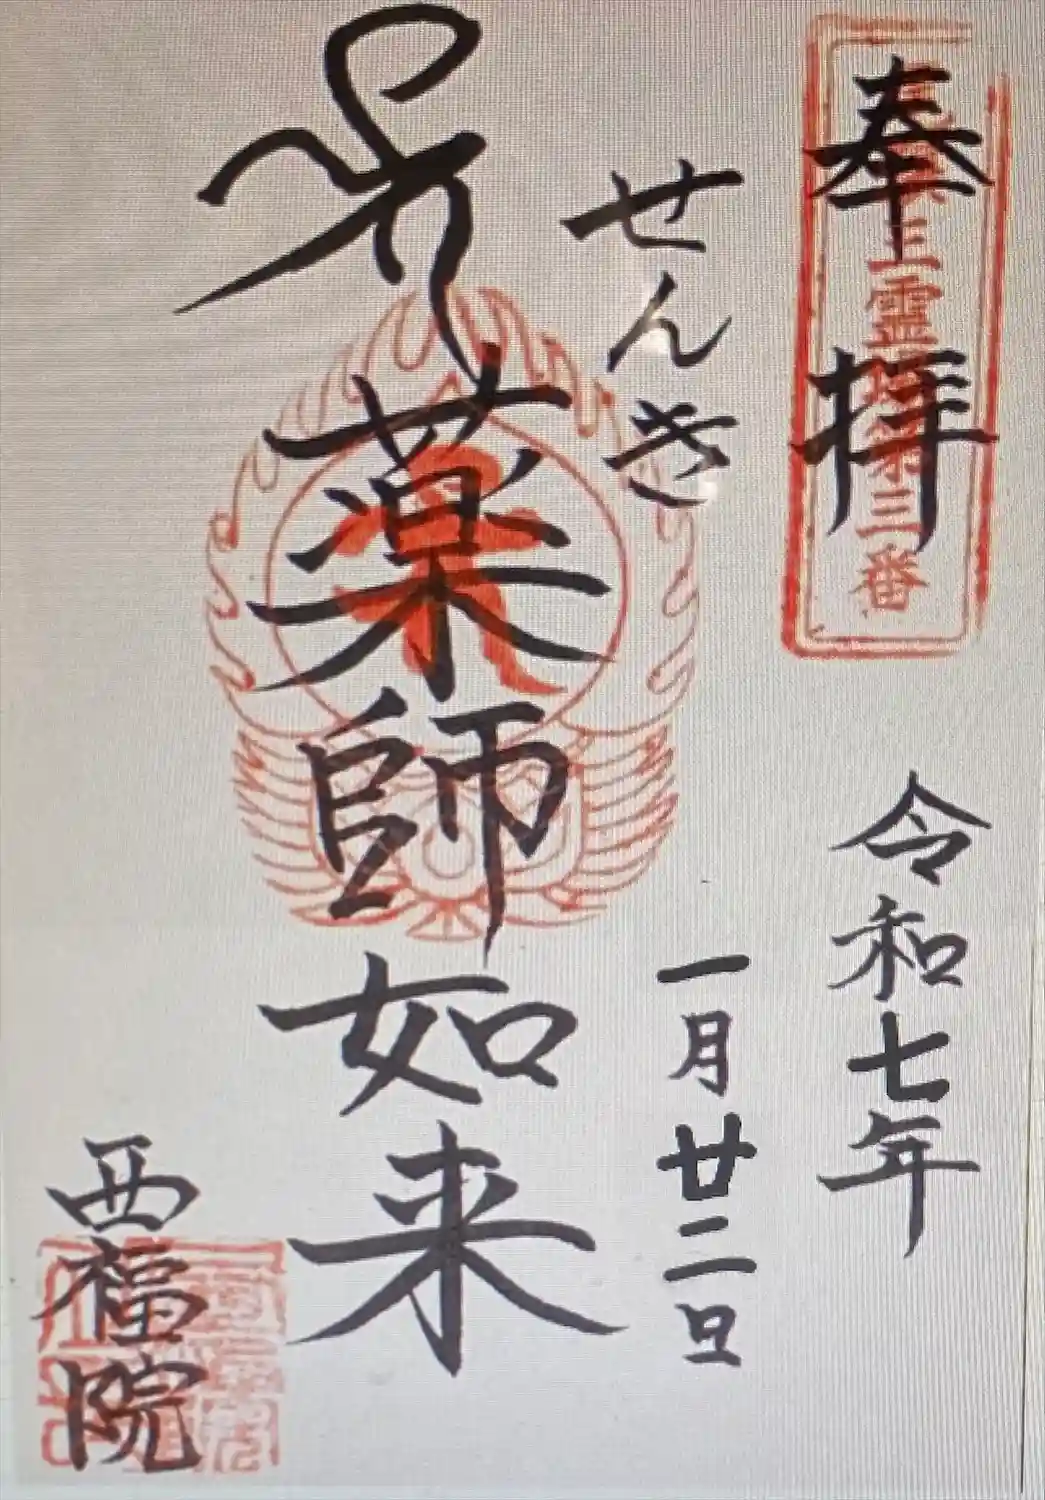 奉拝
三霊場第三番
令和七年
一月廿二日
せんき
薬師如来
西福院